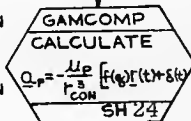 GAMCOMP
CALCULATE
a_p = -μ_p / r³_CON [f(q) r(t) + δ(t)
SH 24